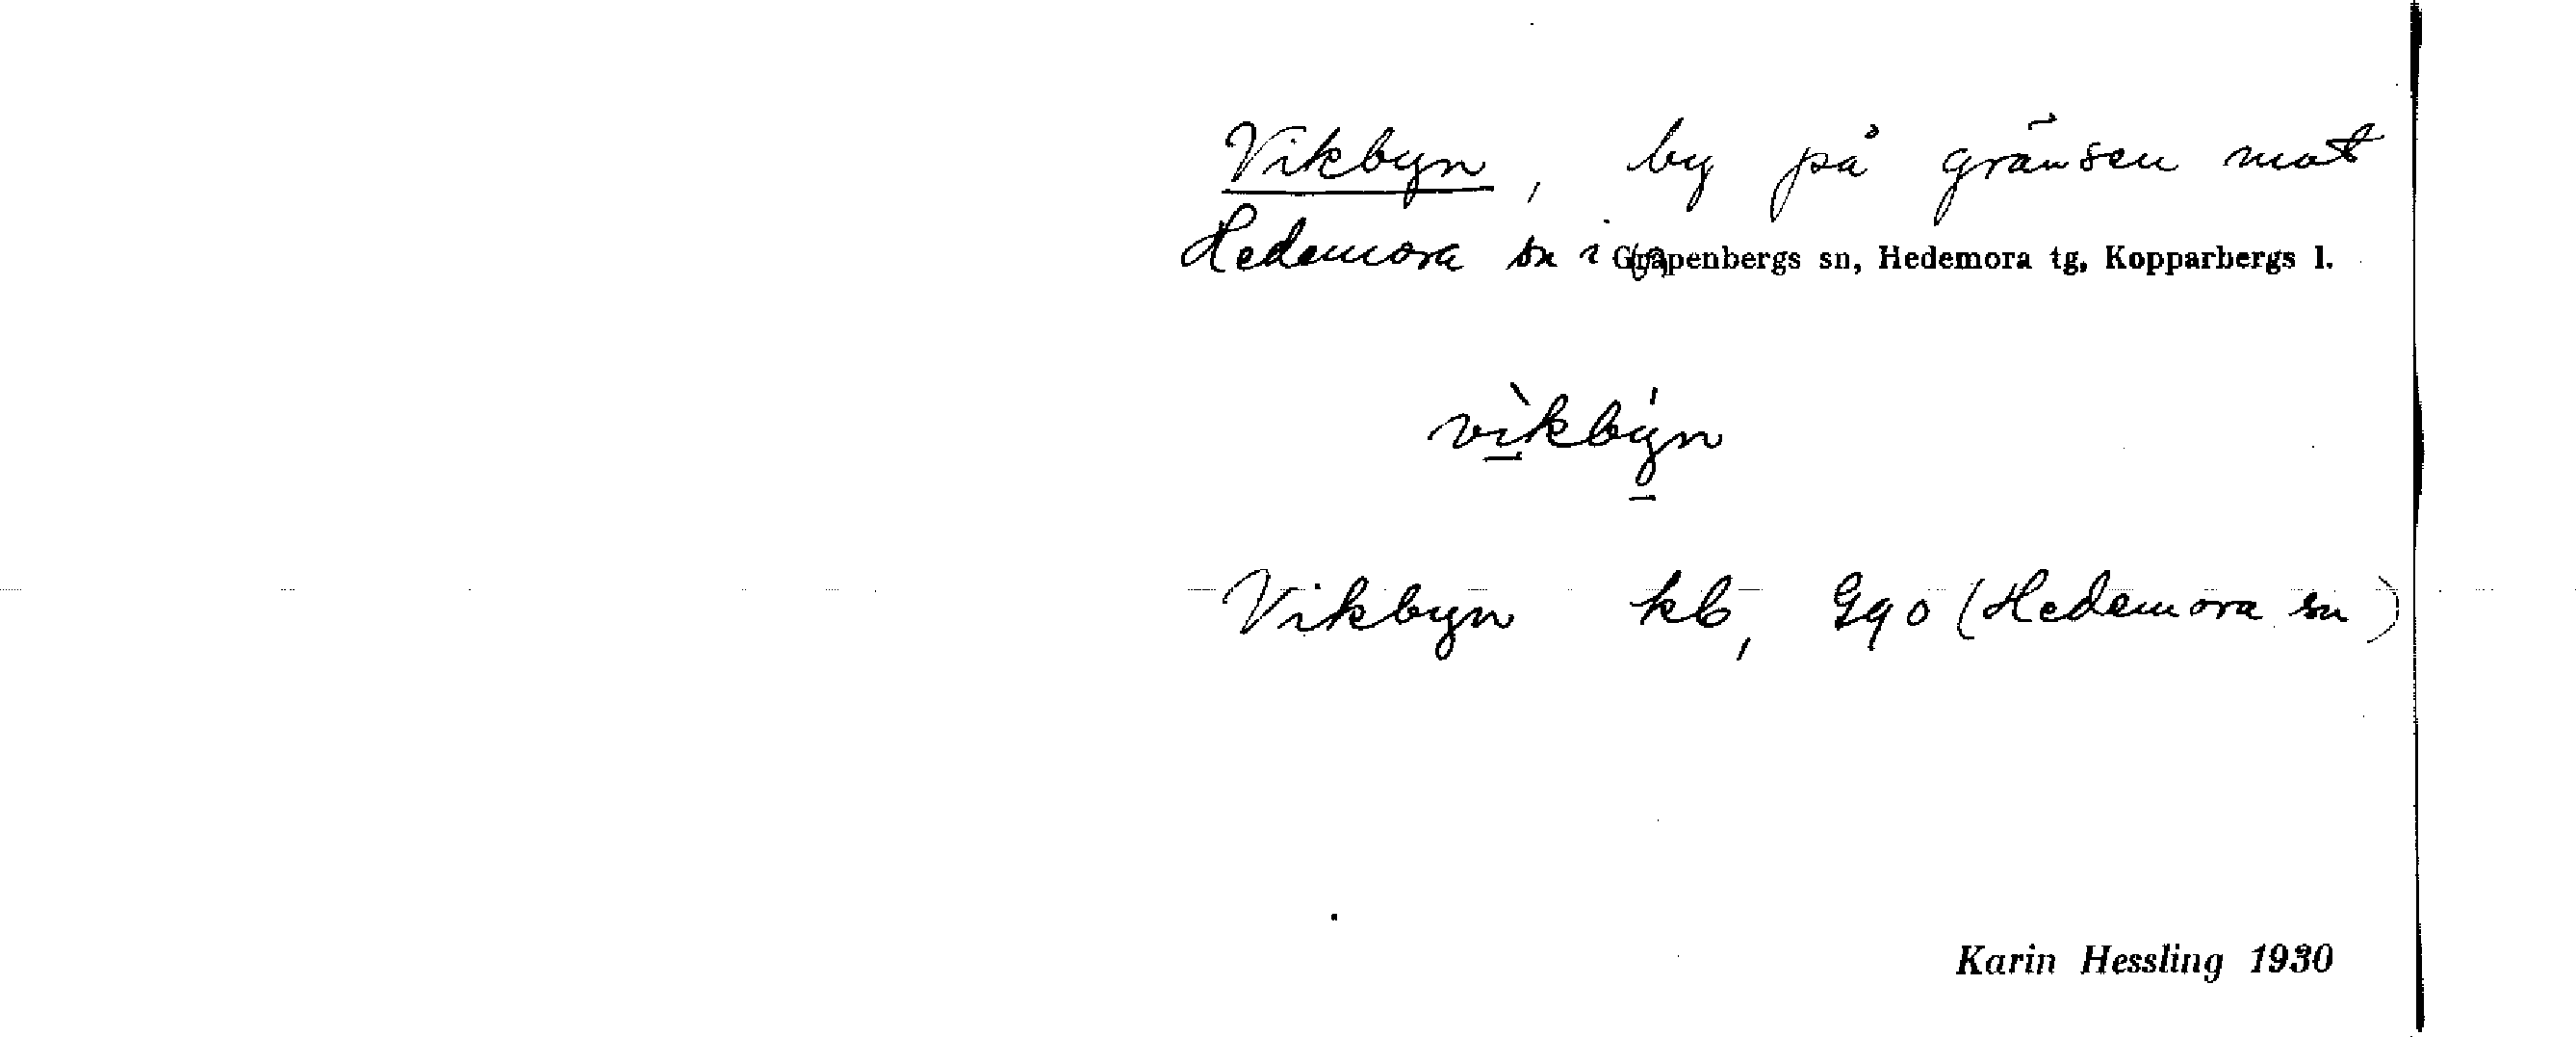 Vikbyn, by på gränsen mot
Hedemora sn i Grapenbergs sn, Hedemora tg, Kopparbergs l.
vìkbýn
Vikbyn kb, Gqo (Hedemora sn)
Karin Hessling 1930